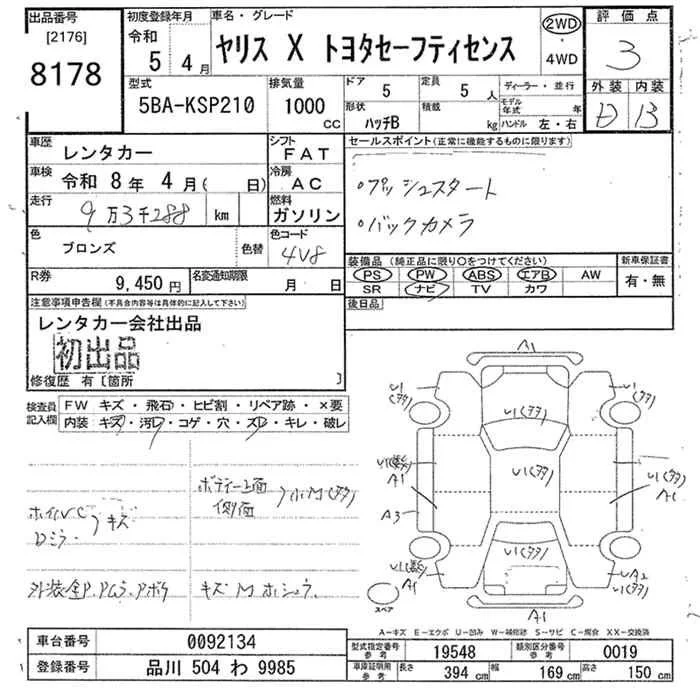 出品番号
[2176]
8178
初度登録年月
令和
5 4月
車名・グレード
ヤリス X トヨタセーフティセンス
2WD
・
4WD
評価点
3
外装 内装
B
型式
5BA-KSP210
排気量
1000
CC
ドア
5
定員
5人
形状
ハッチB
積載
kg
ディーラー・並行
モデル年式 年
ハンドル 左・右
車歴
レンタカー
シフト
FAT
車検
令和 8年 4月( 日)
冷房
AC
走行
9万3千288 km
燃料
ガソリン
色
ブロンズ
色替
色コード
4V8
R券
9,450円
名変通知期限
月 日
セールスポイント(正常に機能するものに限ります)
・プッシュスタート
・バックカメラ
装備品 (純正品に限り○をつけてください)
PS PW ABS エアB AW
SR ナビ TV カワ
新車保証書
有・無
後日品
注意事項申告欄(不具合内容等は具体的に記入して下さい)
レンタカー会社出品
初出品
修復歴 有〔箇所 〕
検査員記入欄
FW キズ・飛石・ヒビ割・リペア跡・×要
内装 キズ・汚レ・コゲ・穴・スレ・キレ・破レ
ボデー上面
側面
小M(タタ)
キズ
Dミラー
キズM
A1
U1
(タタ)
U1
(タタ)
U1(タタ)
U1(タタ)
A1
A3
U1(タタ)
A1
UA2
U1(タタ)
A1
スペア
A-キズ E-エクボ U-凹み W-補修跡 S-サビ C-腐食 XX-交換済
車台番号
0092134
登録番号
品川 504 わ 9985
型式指定番号
参考
19548
類別区分番号
参考
0019
車庫証明用
参考
長さ 394 cm
幅 169 cm
高さ 150 cm